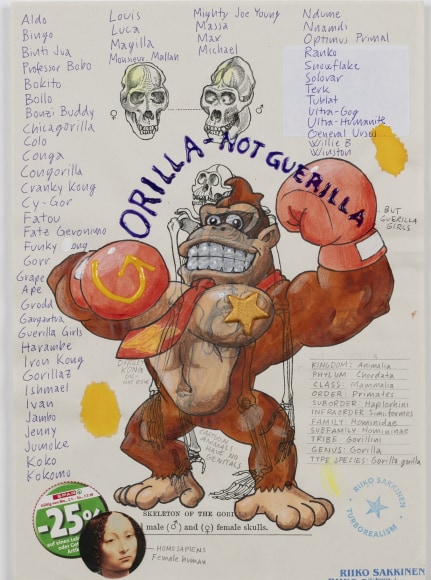 Aldo
Bingo
Binti Jua
Professor Bobo
Bokito
Bollo
Bonzi Buddy
Chicagorilla
Colo
Conga
Congorilla
Cranky Kong
Cy-Gor
Fatou
Fatz Geronimo
Funky ong
Gorr
Grape
Ape
Grodd
Gargantua
Guerilla Girls
Harambe
Iron Kong
Gorillaz
Ishmael
Ivan
Jambo
Jenny
Jumoke
Koko
Kokomo
Louis
Luca
Magilla
Monsieur Mallah
Mighty Joe Young
Massa
Max
Michael
Ndume
Nnamdi
Optimus Primal
Ranko
Snowflake
Solovar
Terk
Tublat
Ultra-Gog
Ultra-Humanite
General Ursus
Willie B
Winston
♀
♂
GORILLA - NOT GUERILLA
BUT
GUERILLA
GIRLS
CARTOON
ANIMALS
HAVE NO
GENITALS
KINGDOM: Animalia
PHYLUM: Chordata
CLASS: Mammalia
ORDER: Primates
SUBORDER: Haplorhini
INFRAORDER: Simiiformes
FAMILY: Hominidae
SUBFAMILY: Homininae
TRIBE: Gorillini
GENUS: Gorilla
TYPE SPECIES: Gorilla gorilla
SKELETON OF THE GORI
male (♂) and (♀) female skulls.
SPAR
-25%
HOMO SAPIENS
Female human
RIIKO SAKKINEN
TURBOREALISM
RIIKO SAKKINEN